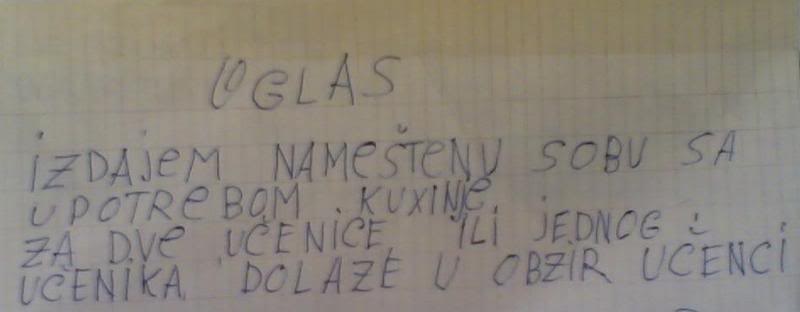 OGLAS
iZDAjeM NAMešTeNU SOBU SA
UPOTReBOM. KUXINje.
ZA DVe UČENiCE ILi jEDNOG
UČENiKA DOLAZE U OBZiR UČENCi